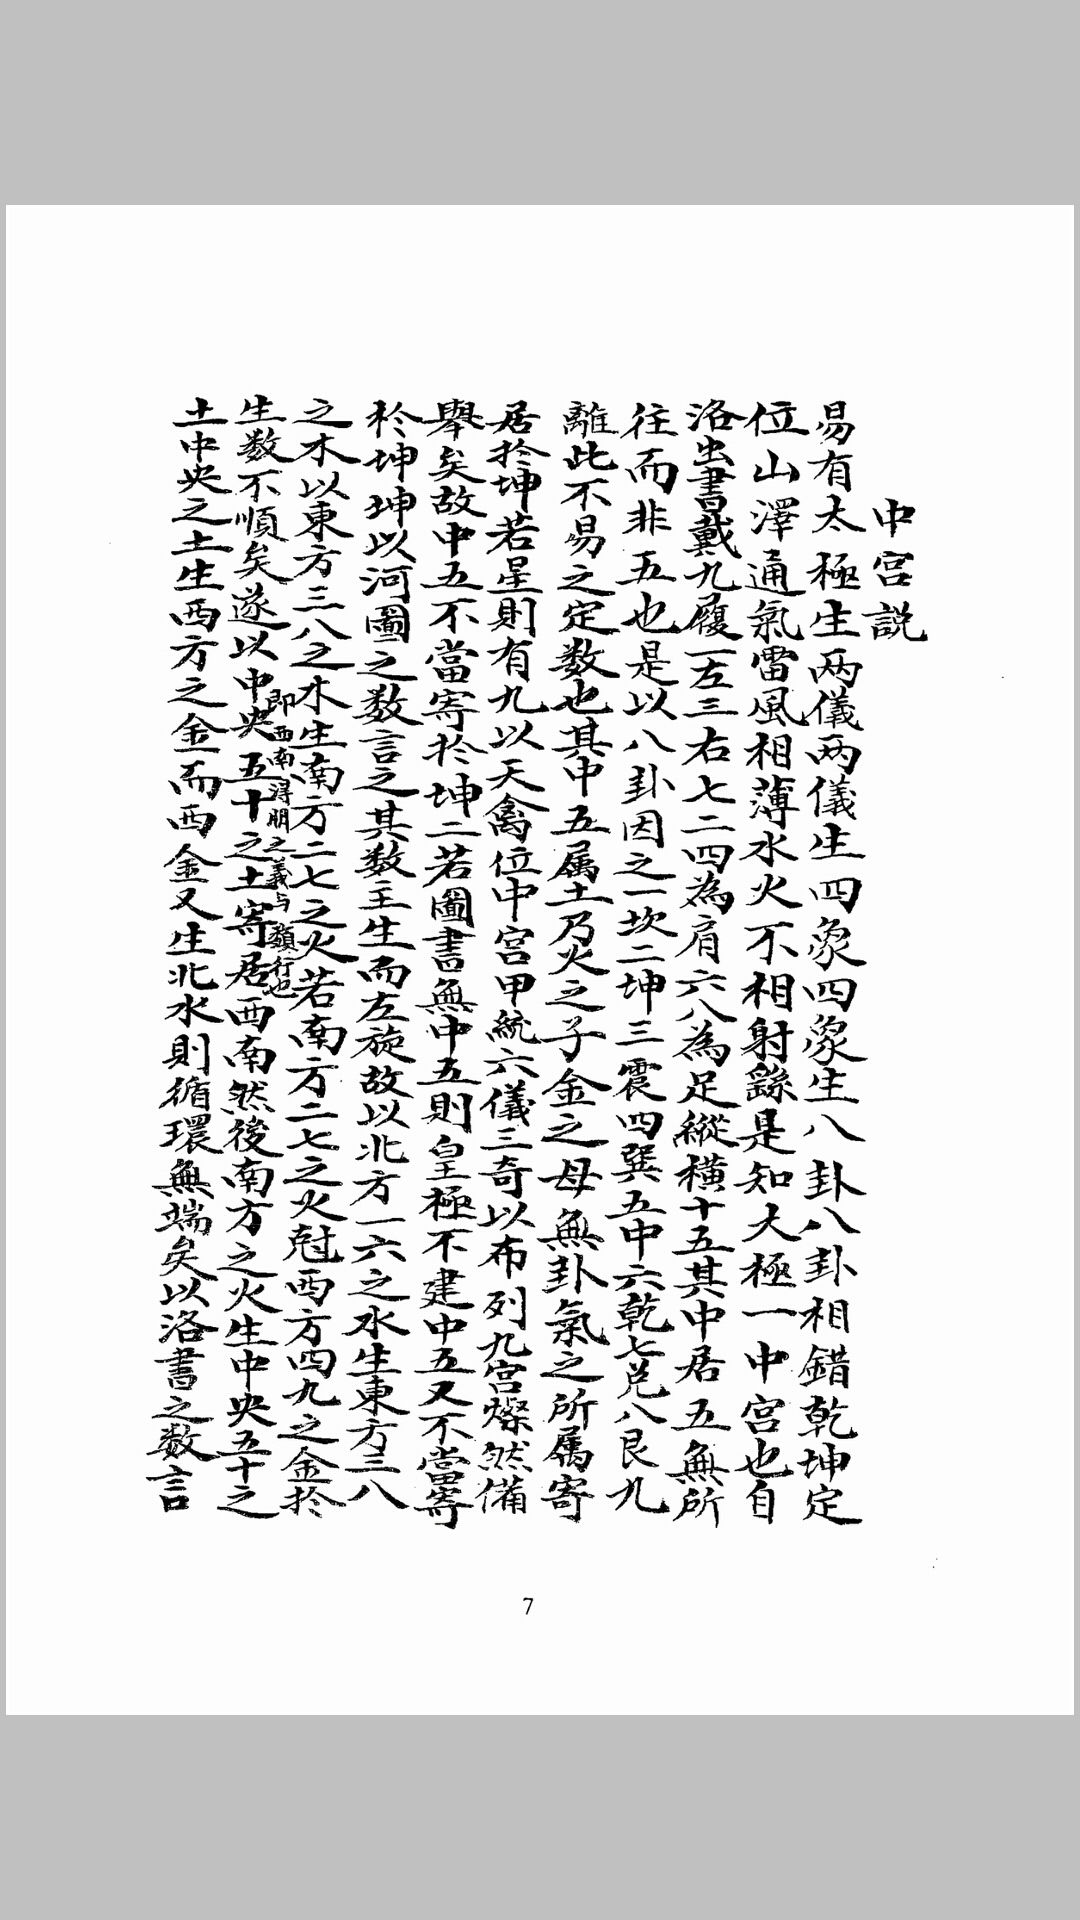 中宮説
易有太極生两儀两儀生四象四象生八卦八卦相錯乾坤定
位山澤通氣雷風相薄水火不相射繇是知大極一中宮也自
洛出書戴九履一左三右七二四為肩六八為足縱橫十五其中居五無所
往而非五也是以八卦因之一坎二坤三震四巽五中六乾七兑八艮九
離此不易之定数也其中五属土乃火之子金之母無卦氣之所属寄
居扵坤若星則有九以天禽位中宮甲統六儀三奇以布列九宮燦然備
舉矣故中五不當寄扵坤二若圖書無中五則皇極不建中五又不當寄
扵坤坤以河圖之数言之其数主生而左旋故以北方一六之水生東方三八
之木以東方三八之木生南方二七之火若南方二七之火尅西方四九之金扵
生数不順矣遂以中央五十之土寄居西南然後南方之火生中央五十之
即西南得朋之義与類行也
土中央之土生西方之金而西金又生北水則循環無端矣以洛書之数言
7